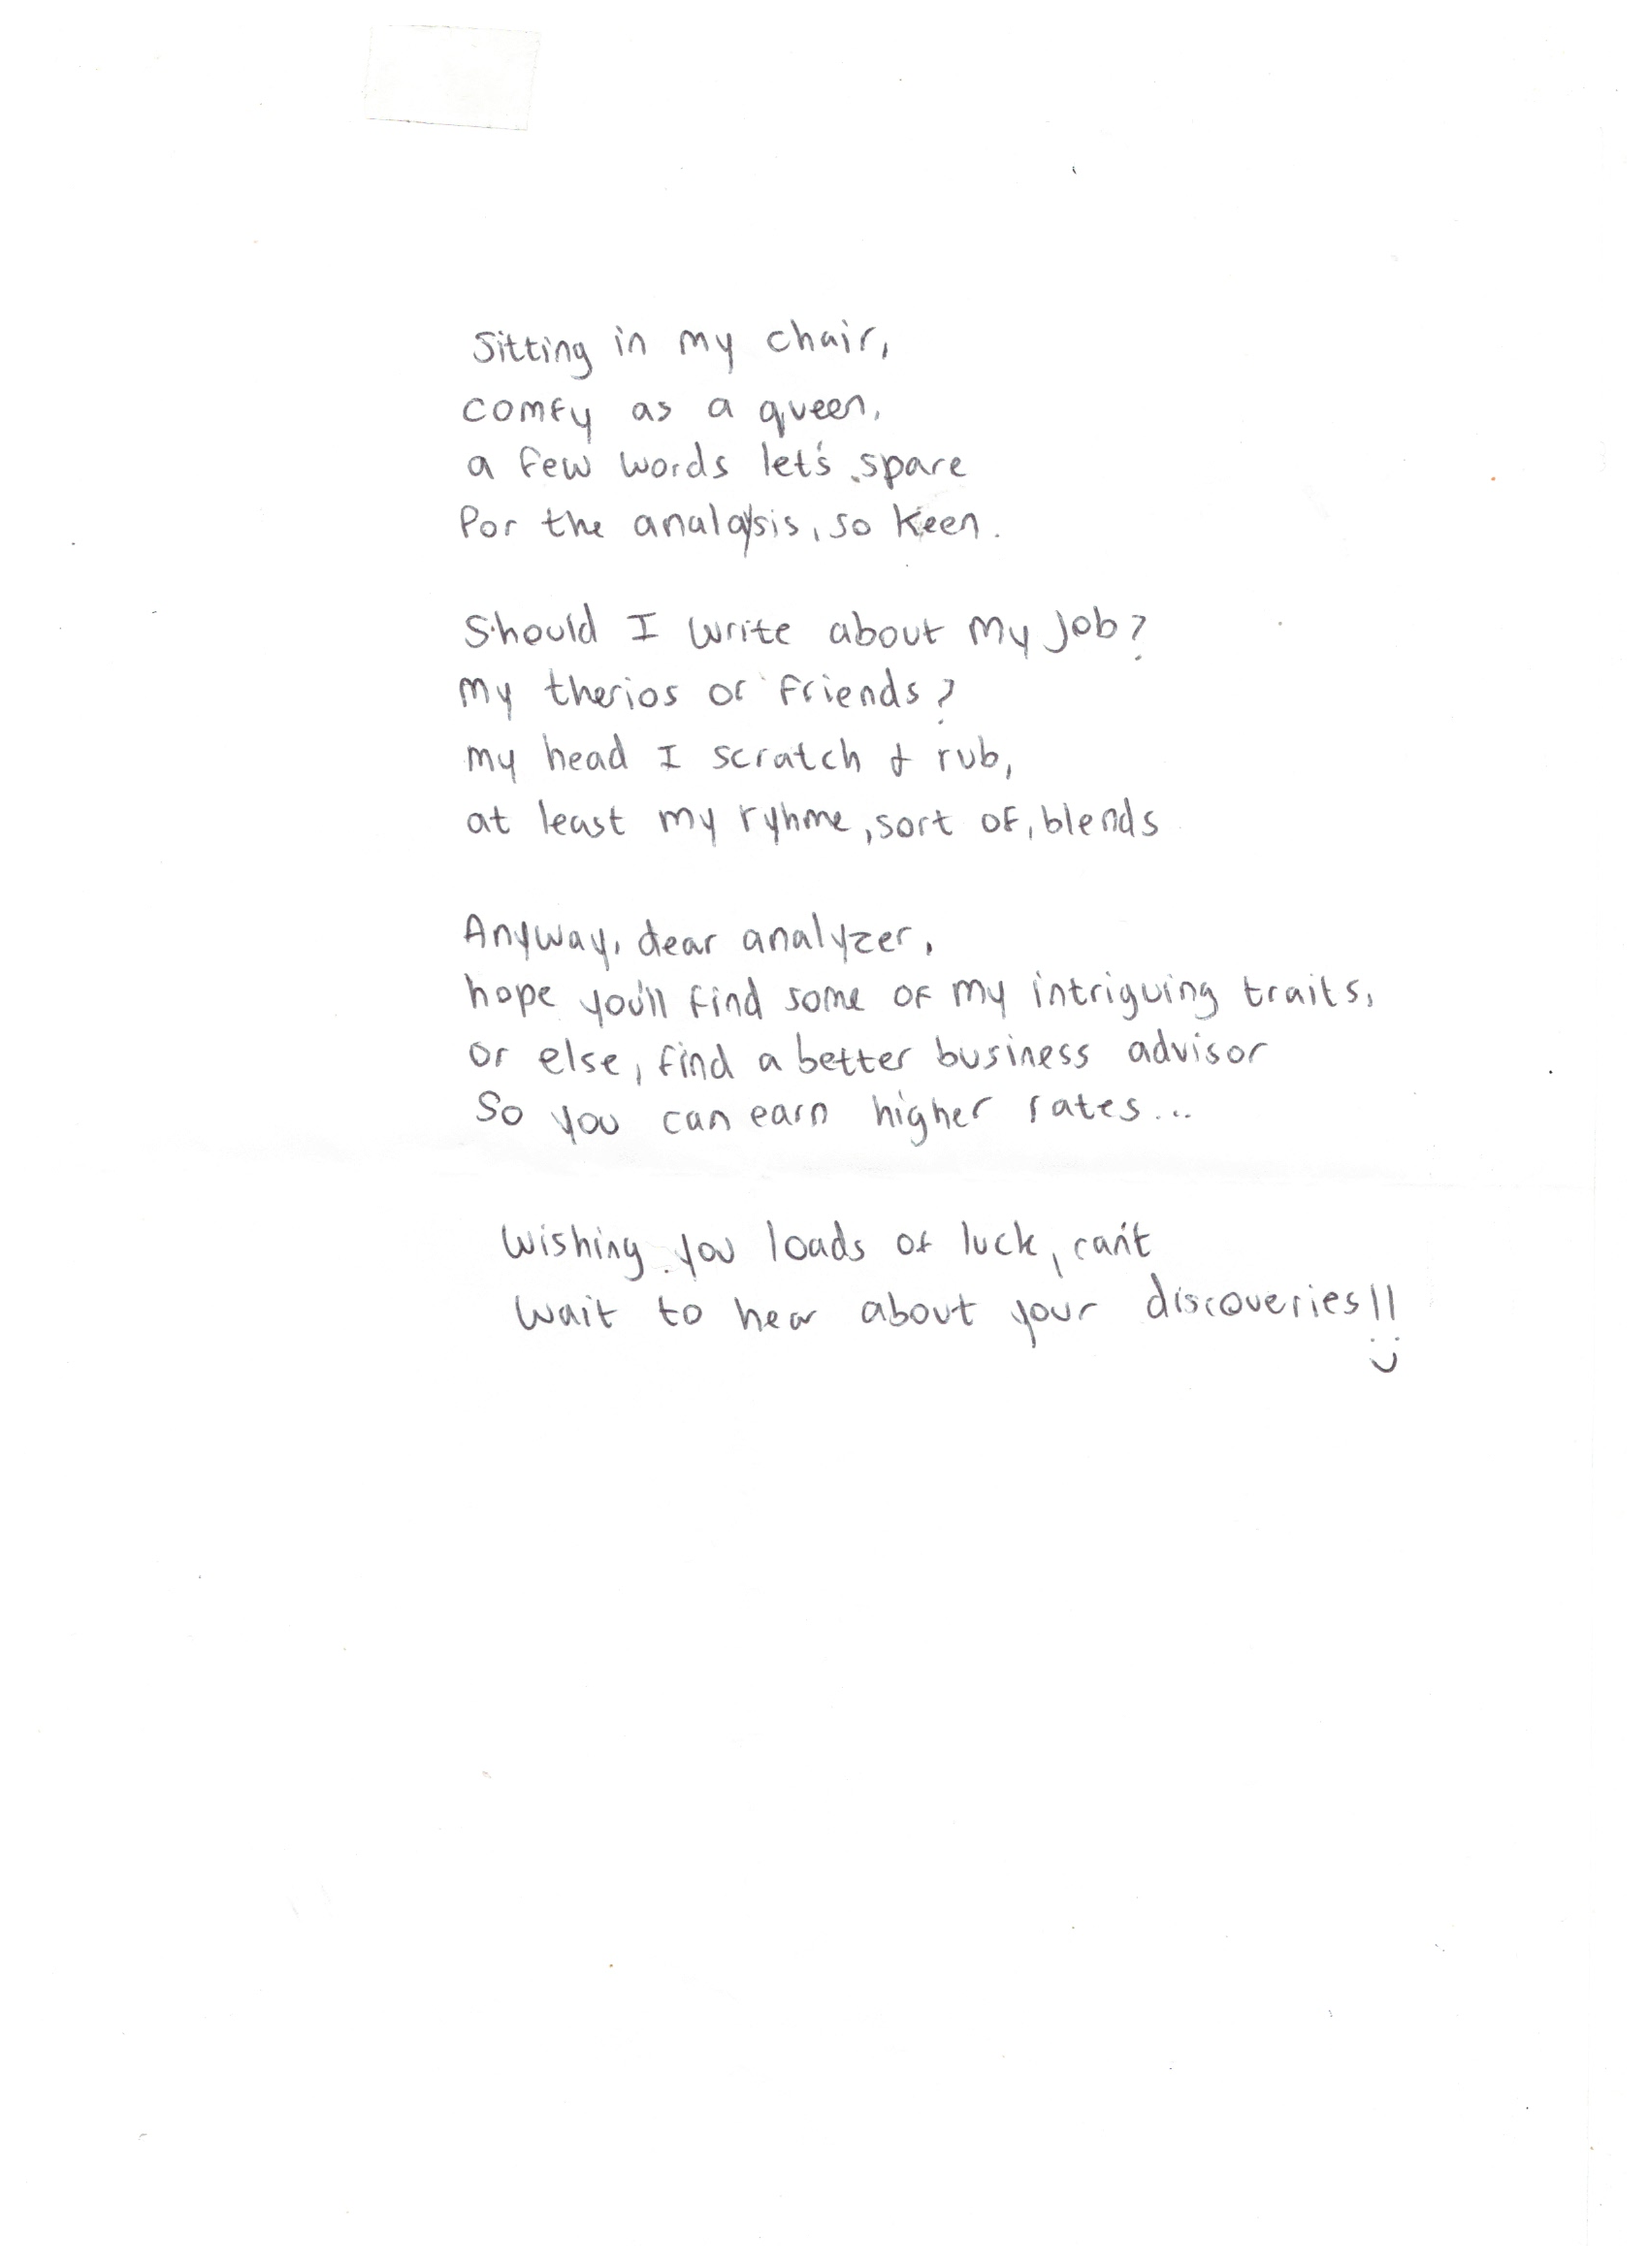 Sitting in my chair,
comfy as a queen,
a few words let's spare
for the analysis, so keen.
Should I write about my job?
my therios or friends?
my head I scratch & rub,
at least my ryhme, sort of, blends
Anyway, dear analyzer,
hope you'll find some of my intriguing traits,
or else, find a better business advisor
So you can earn higher rates...
Wishing you loads of luck, can't
wait to hear about your discoveries!!